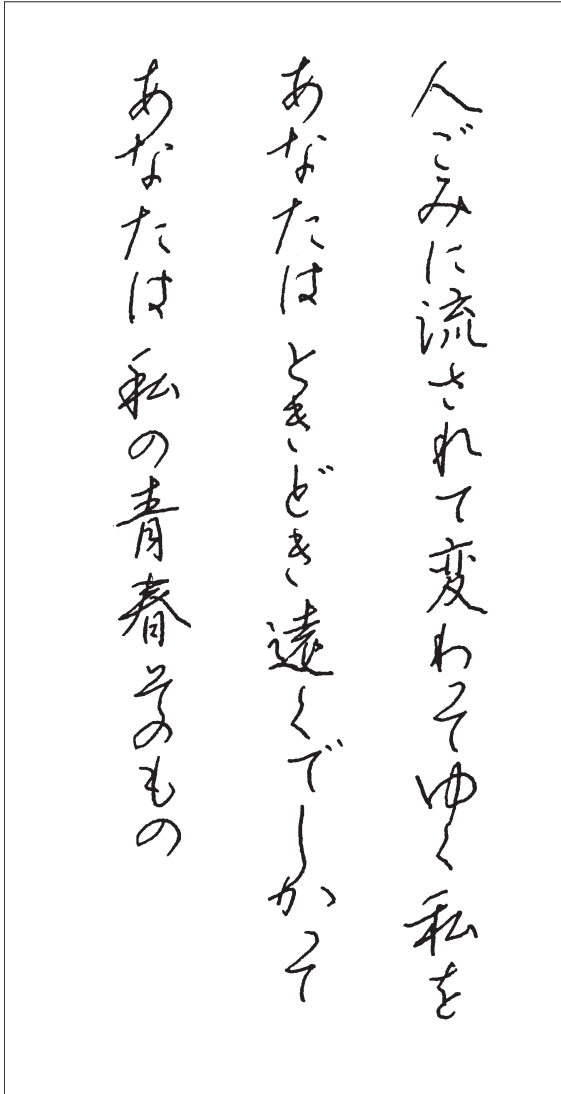 人ごみに流されて変わってゆく私を
あなたは ときどき遠くでしかって
あなたは 私の青春そのもの